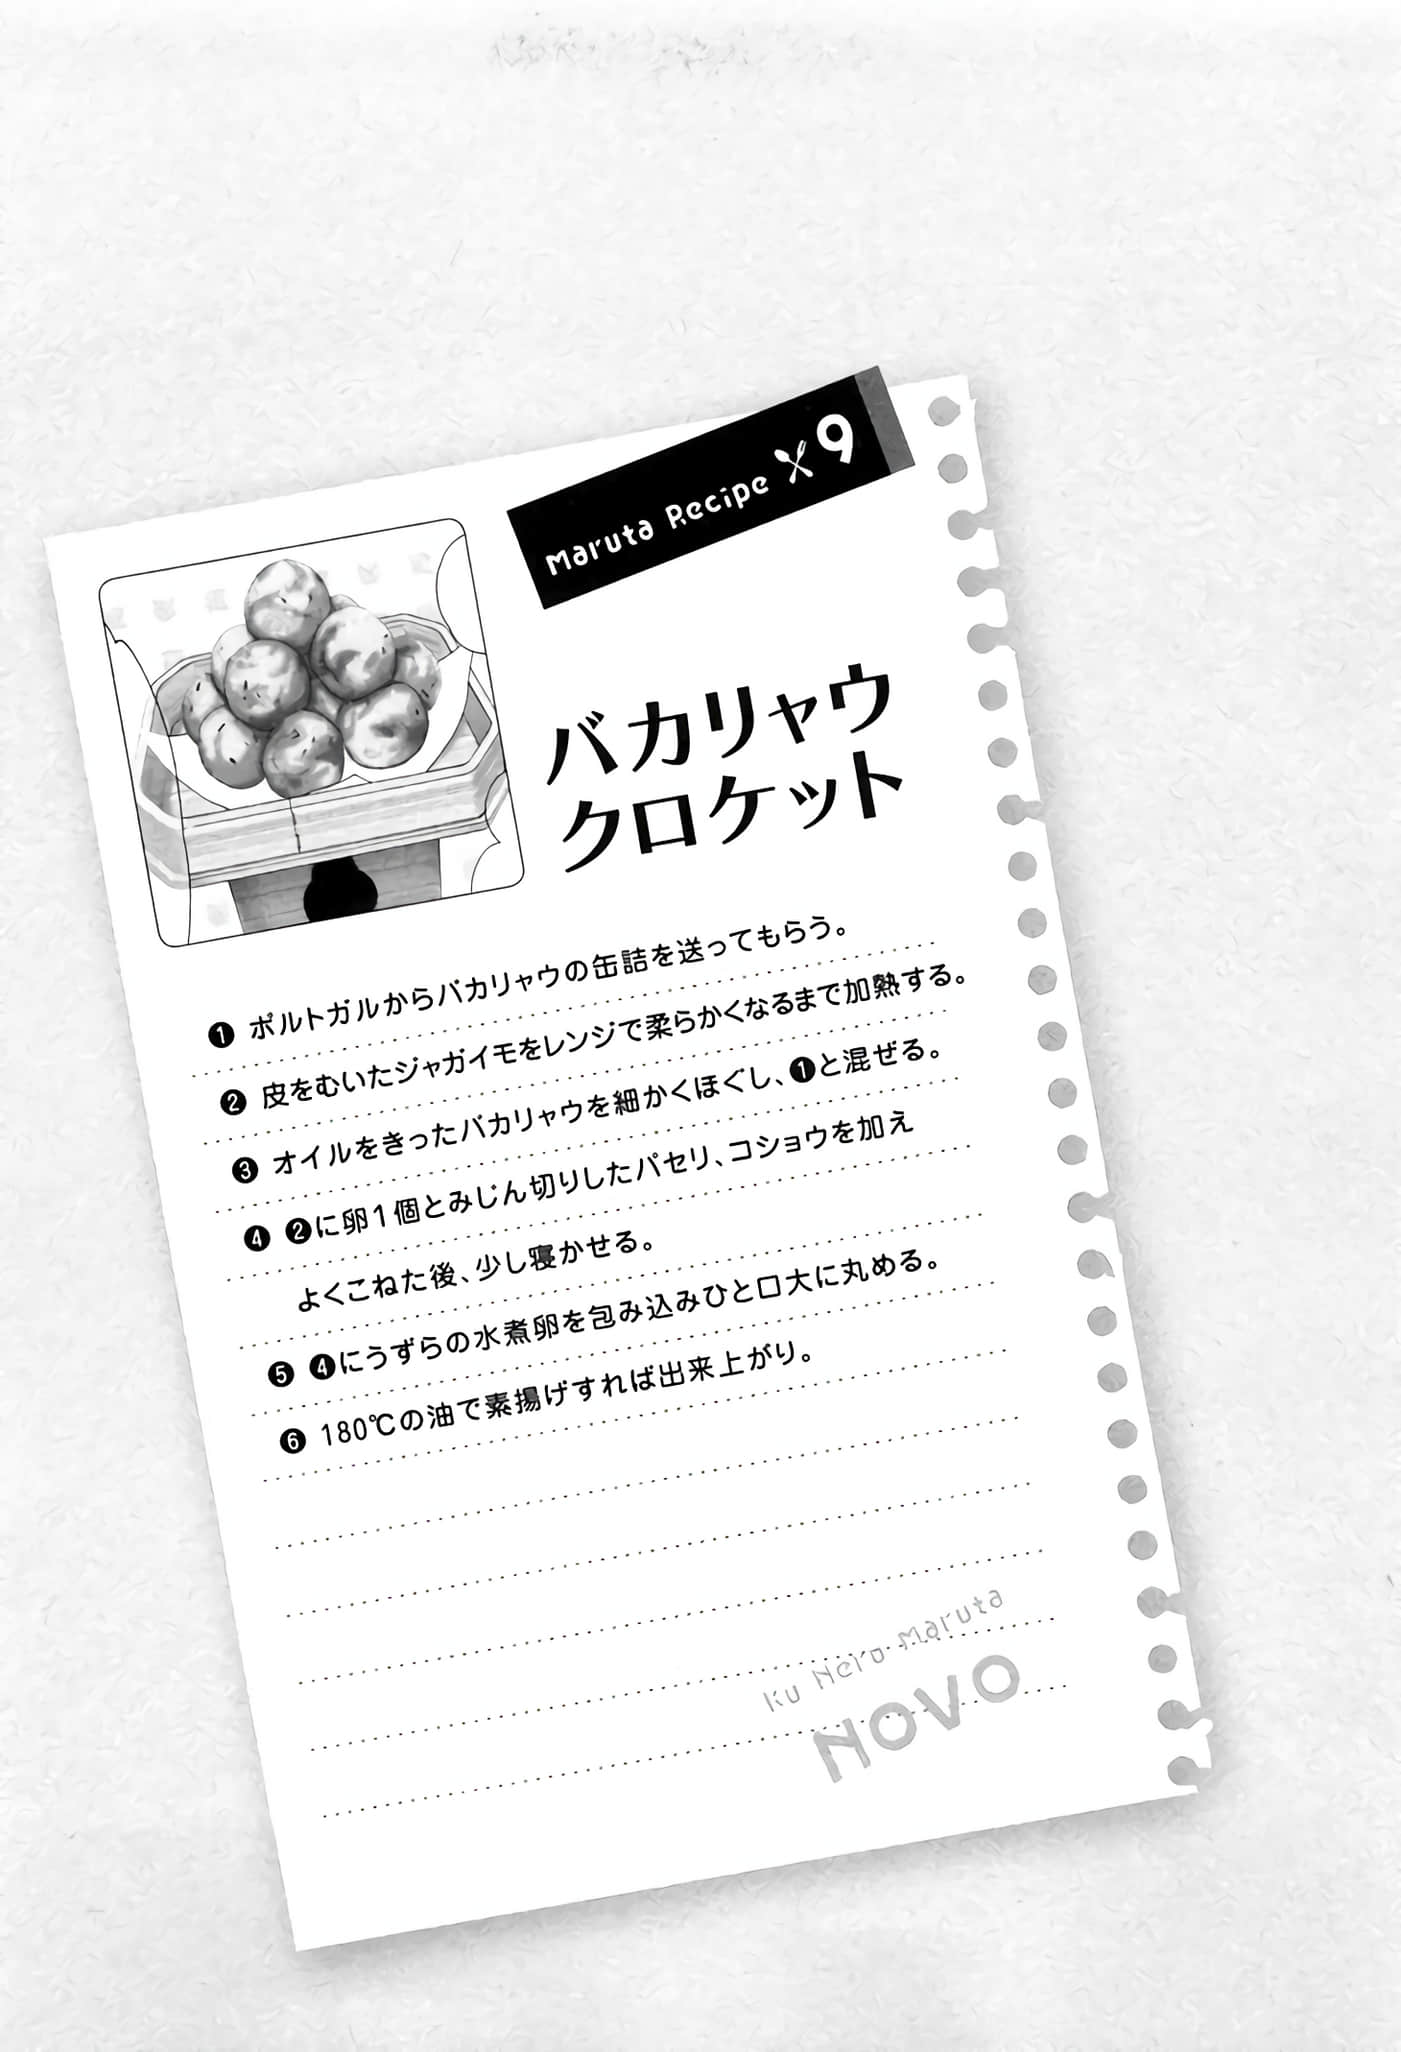 Maruta Recipe 9
バカリャウ
クロケット
❶ ポルトガルからバカリャウの缶詰を送ってもらう。
❷ 皮をむいたジャガイモをレンジで柔らかくなるまで加熱する。
❸ オイルをきったバカリャウを細かくほぐし、❶と混ぜる。
❹ ❷に卵1個とみじん切りしたパセリ、コショウを加え
よくこねた後、少し寝かせる。
❺ ❹にうずらの水煮卵を包み込みひと口大に丸める。
❻ 180℃の油で素揚げすれば出来上がり。
Ku Nero Maruta
NOVO